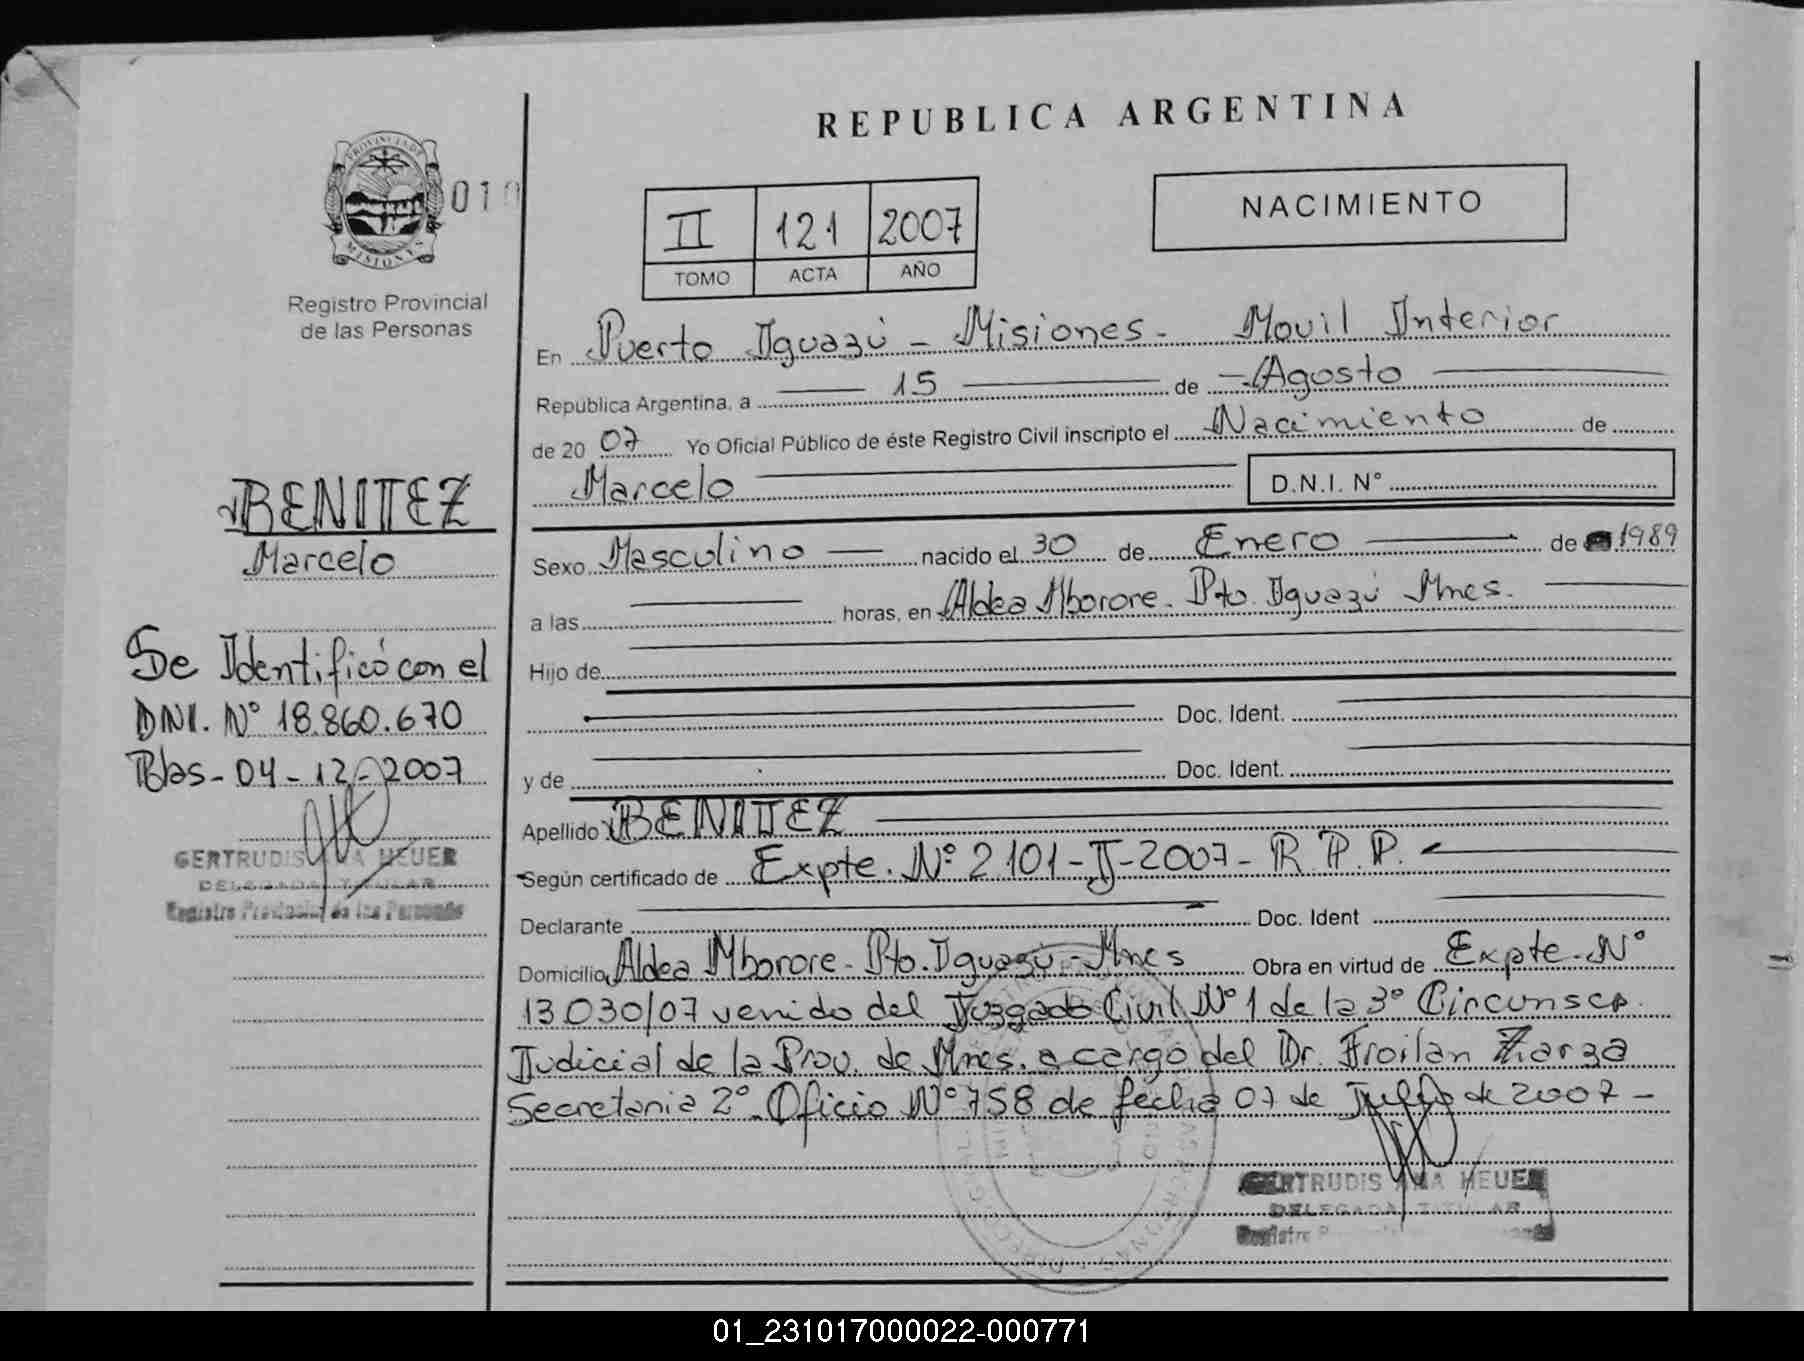 REPUBLICA ARGENTINA
PROVINCIA DE
MISIONES
010
Registro Provincial
de las Personas
II 121 2007
TOMO ACTA AÑO
NACIMIENTO
En Puerto Iguazú - Misiones - Movil Interior
Republica Argentina, a 15 de Agosto
de 20 07 Yo Oficial Público de éste Registro Civil inscripto el Nacimiento de
Marcelo D.N.I. N°
Sexo Masculino nacido el 30 de Enero de 1989
a las horas, en Aldea Mborore. Pto. Iguazú Mnes.
Hijo de
Doc. Ident.
y de Doc. Ident.
Apellido BENITEZ
Según certificado de Expte. N° 2101-I-2007- R.P.P.
Declarante Doc. Ident
Domicilio Aldea Mborore - Pto. Iguazú - Mnes Obra en virtud de Expte. N°
13030/07 venido del Juzgado Civil N° 1 de la 3° Circunscp.
Judicial de la Prov. de Mnes. a cargo del Dr. Froilan Zarza
Secretaria 2° Oficio N° 758 de fecha 07 de Julio de 2007 -
GERTRUDIS ANA HEUER
DELEGADA TITULAR
BENITEZ
Marcelo
Se Identificó con el
DNI. N° 18.860.670
Pdas - 04 - 12 - 2007
GERTRUDIS ANA HEUER
DELEGADA TITULAR
Registro Provincial de las Personas
01_231017000022-000771